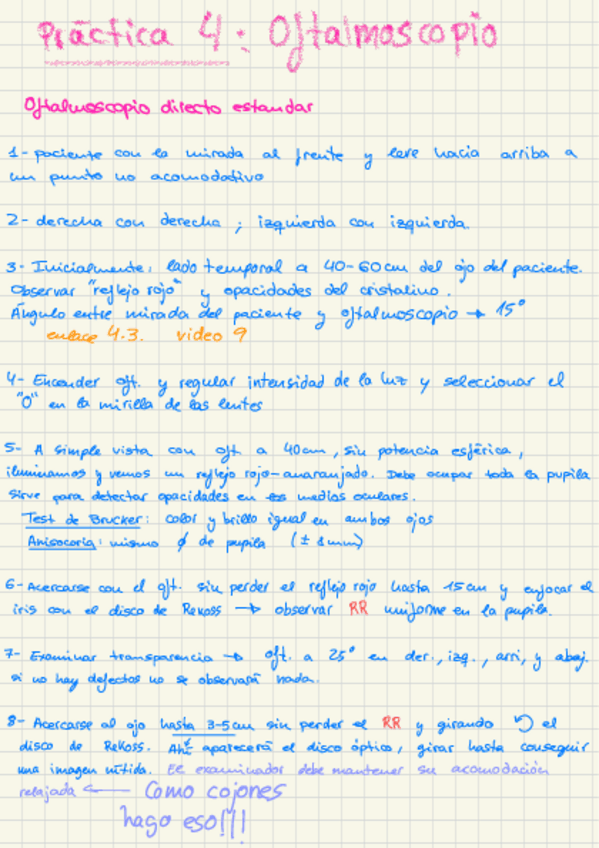 Práctica 4: Oftalmoscopio
Oftalmoscopio directo estandar
1- paciente con la mirada al frente y leve hacia arriba a
un punto no acomodativo
2- derecha con derecha ; izquierda con izquierda.
3- Inicialmente, lado temporal a 40-60cm del ojo del paciente.
Observar "reflejo rojo" y opacidades del cristalino.
Ángulo entre mirada del paciente y oftalmoscopio → 15°
enlace 4.3. video 9
4- Encender oft. y regular intensidad de la luz y seleccionar el
"0" en la mirilla de las lentes
5- A simple vista con oft a 40cm, sin potencia esférica,
iluminamos y vemos un reflejo rojo-anaranjado. Debe ocupar toda la pupila
Sirve para detectar opacidades en los medios oculares.
Test de Brucker: color y brillo igual en ambos ojos
Anisocoria: mismo ϕ de pupila (± 1mm)
6- Acercarse con el oft. sin perder el reflejo rojo hasta 15cm y enfocar el
iris con el disco de Rekoss → observar RR uniforme en la pupila.
7- Examinar transparencia → oft. a 25° en der., izq., arri, y abaj.
si no hay defectos no se observará nada.
8- Acercarse al ojo hasta 3-5cm sin perder el RR y girando ↺ el
disco de Rekoss. Ahí aparecerá el disco óptico, girar hasta conseguir
una imagen nítida. El examinador debe mantener su acomodación
relajada ← Como cojones
hago eso!!!